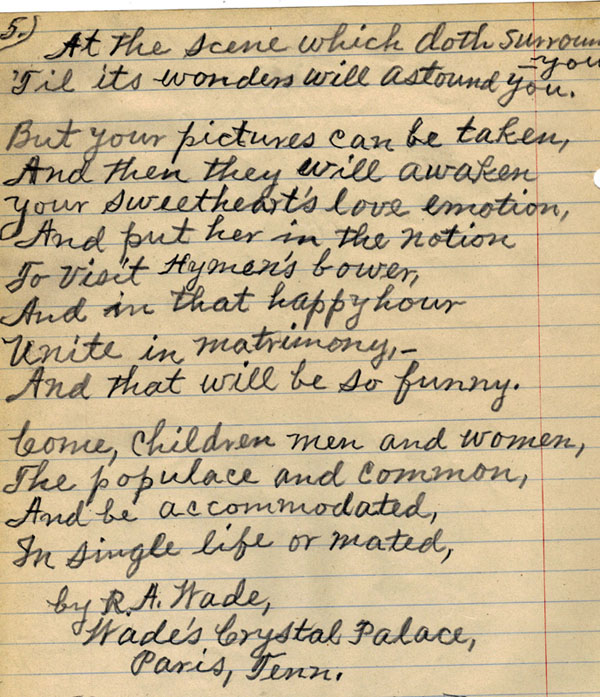 5.)
At the scene which doth surround
- you
'Til its wonders will astound you.
But your pictures can be taken,
And then they will awaken
Your sweetheart's love emotion,
And put her in the notion
To visit Hymen's bower,
And in that happy hour
Unite in matrimony,-
And that will be so funny.
Come, children men and women,
The populace and common,
And be accommodated,
In single life or mated,
by R.A. Wade,
Wade's Crystal Palace,
Paris, Tenn.